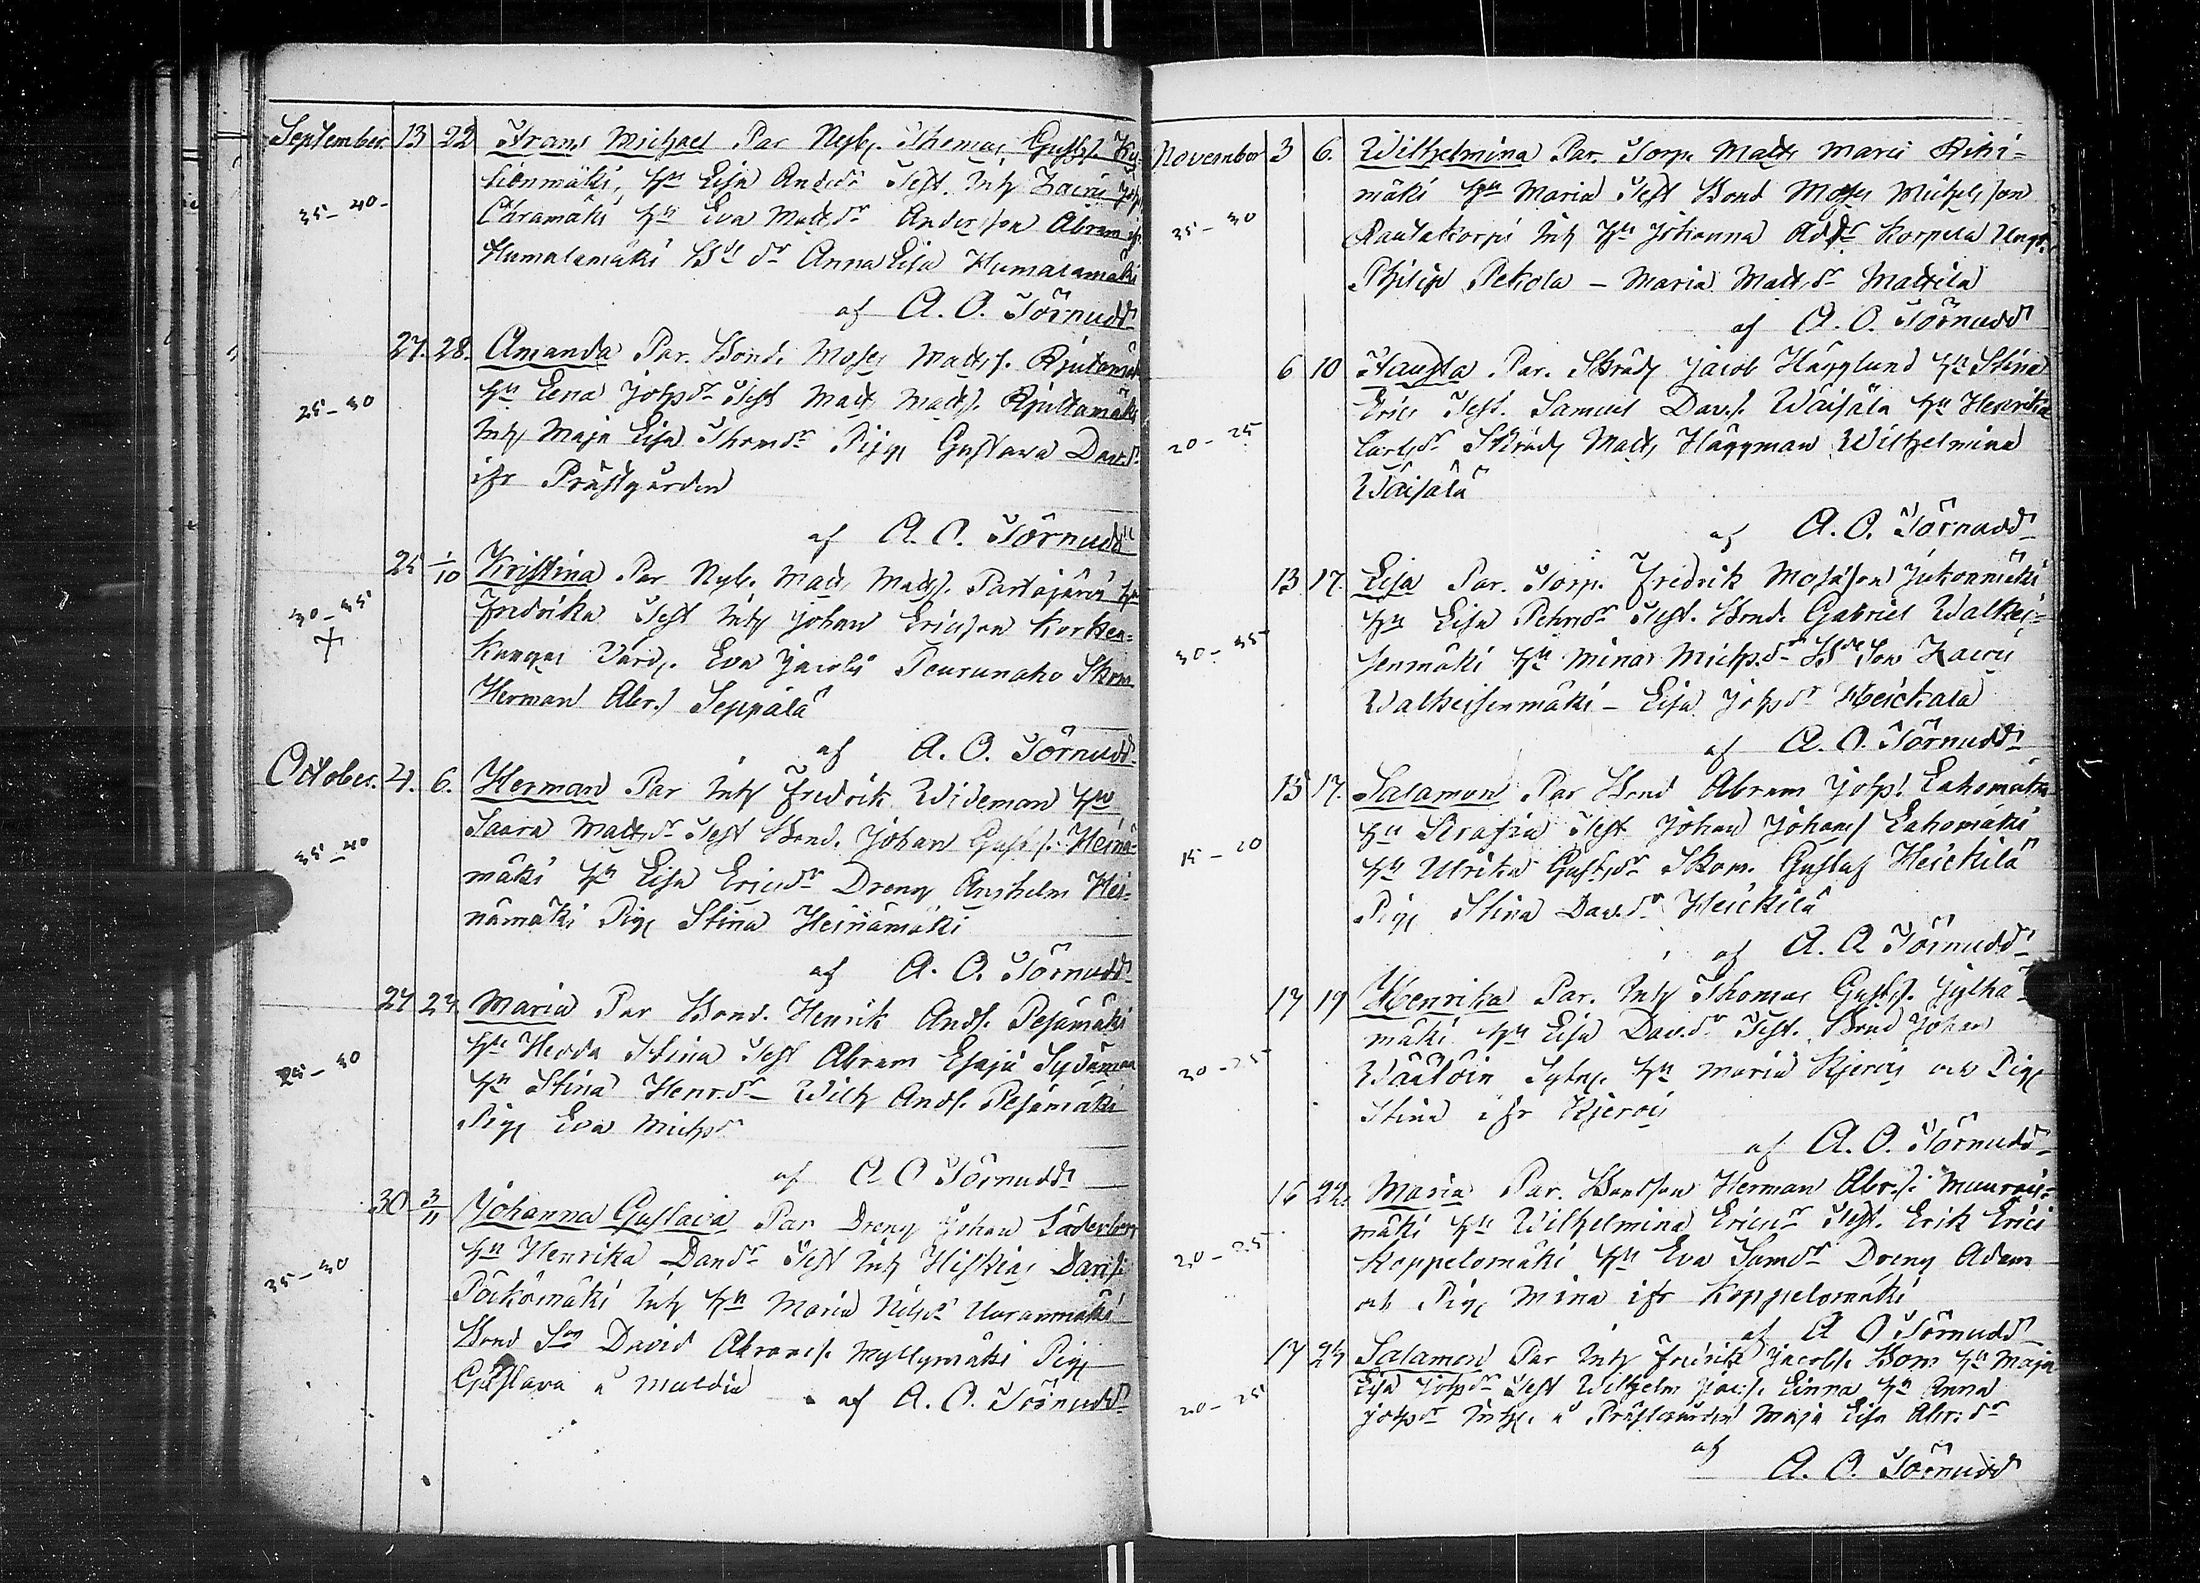 September 13 22 Frans Michael Par Nyb. Thomas Gust.
mäki, hu Lisa Andrsdr Test. Inh Zacris
35-40 Ohramäki hu Eva Mattsdr Anderson Abram
Humalamäki Bd dr Anna Lisa Humalamäki
af A. O. Törnudd
27. 28. Amanda Par. Bond. Moses Matts.
25-30 hu Lena Johsdr Test Matts Matts.
Inh Maja Lisa Thomdr Pig Gustava Dav.dr
ifr Prästgården
af A. O. Törnudd
25 1/10 Kristina Par Nyb. Matts Matts. Partajärvi hu
30-35 Fredrika Test Inh Johan Ericsson Korkea-
+ kangas Värd. Eva Jacobs Peurunaho Skom
Herman Abr.s Seppälä
af A. O. Törnudd
October. 4. 6. Herman Par Inh Fredrik Wideman hu
Saara Mattsdr Test Bond. Johan Gust.s. Heinä-
35-40 mäki hu Lisa Ericsdr Dreng Anshelm Hei-
nämäki Pig Stina Heinämäki
af A. O. Törnudd
27 27 Maria Par Bond. Henrik Ands. Pesämäki
hu Hedda Stina Test Abram Esaja Sydänmaa
25-30 hu Stina Henr.dr Wilh Ands. Pesämäki
Pig Eva Michsdr
af A O Törnudd
30 3/11 Johanna Gustava Par Dreng Johan Söderberg
hu Henrika Davdr Test Inh Hiskias Davs.
35-30 Pöckömäki Inh hu Maria Nilsdr Vuorenmäki
Bond Son David Abrams. Myllymäki Pig
Gustava a Mattila
af A. O. Törnudd
November 3 6. Wilhelmina Par. Torp. Matts Maris Riihi-
mäki hu Maria Test Bond Moses Michelsson
25-30 Rautakorpi Inh hu Johanna Addr Korpela Ungk.
Philip Pekola - Maria Matts.dr Mattila
af A. O. Törnudd
6 10 Fausta Par. Skräd Jacob Hägglund hu Stina
Erics Test. Samuel Dav.s. Waisälä hu Henrika
20-25 Carlsdr Skräd Matts Häggman Wilhelmina
Waisälä
af A. O. Törnudd
13 17. Lisa Par. Torp. Fredrik Mosisson Jukonmäki
hu Lisa Pehrsdr Test. Bond. Gabriel Walkei-
30-35 senmäki hu Mina Michs.dr Bde Son Zacris
Walkeisenmäki - Lisa Johsdr Heickala
af A. O. Törnudd
15 17. Salamon Par Bond Abram Johs. Lahomäki
hu Serafia Test Johan Johans Lahomäki
15-20 hu Ulrika Gustsdr Skom. Gustaf Heickilä
Pig Stina Dav.dr Heickilä
af A. O Törnudd
17 19 Henrika Par. Inh Thomas Gusts. Jylhä-
mäki hu Lisa Dav.dr Test. Bond Johan
30-35 hu Maria Kjerois och Pig
Stina ifr Kjerois
af A. O. Törnudd
16 24. Maria Par. Bondson Herman Abr.s.
mäki hu Wilhelmina Ericsdr Test. Erik Erics
20-25 Koppelomäki hu Eva Samdr Dreng Adam
och Pig Mina ifr Koppelomäki
af A O Törnudd
17 24 Salamon Par Inh Fredrik Jacobs. Bom hu Maja
Lisa Johsdr Test Wilhelm Jacs. Linna hu Anna
20-25 Johsdr Inhs. a Prästgården Maja Lisa Abr.dr
af
A. O. Törnudd